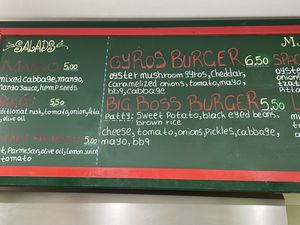 SALADS
MANGO 5,00
mixed cabbage, mango,
mango sauce, hemp seeds
5,50
rusk, tomato, onion, feta
olive oil
5,00
Parmesan, olive oil, lemon juice
tomato
GYROS BURGER 6,50
oyster mushroom gyros, cheddar,
caramelized onions, tomato, mayo,
bbq, cabbage
BIG BOSS BURGER 5,50
Patty: Sweet Potato, black eyed beans,
brown rice
cheese, tomato, onions, pickles, cabbage,
mayo, bbq